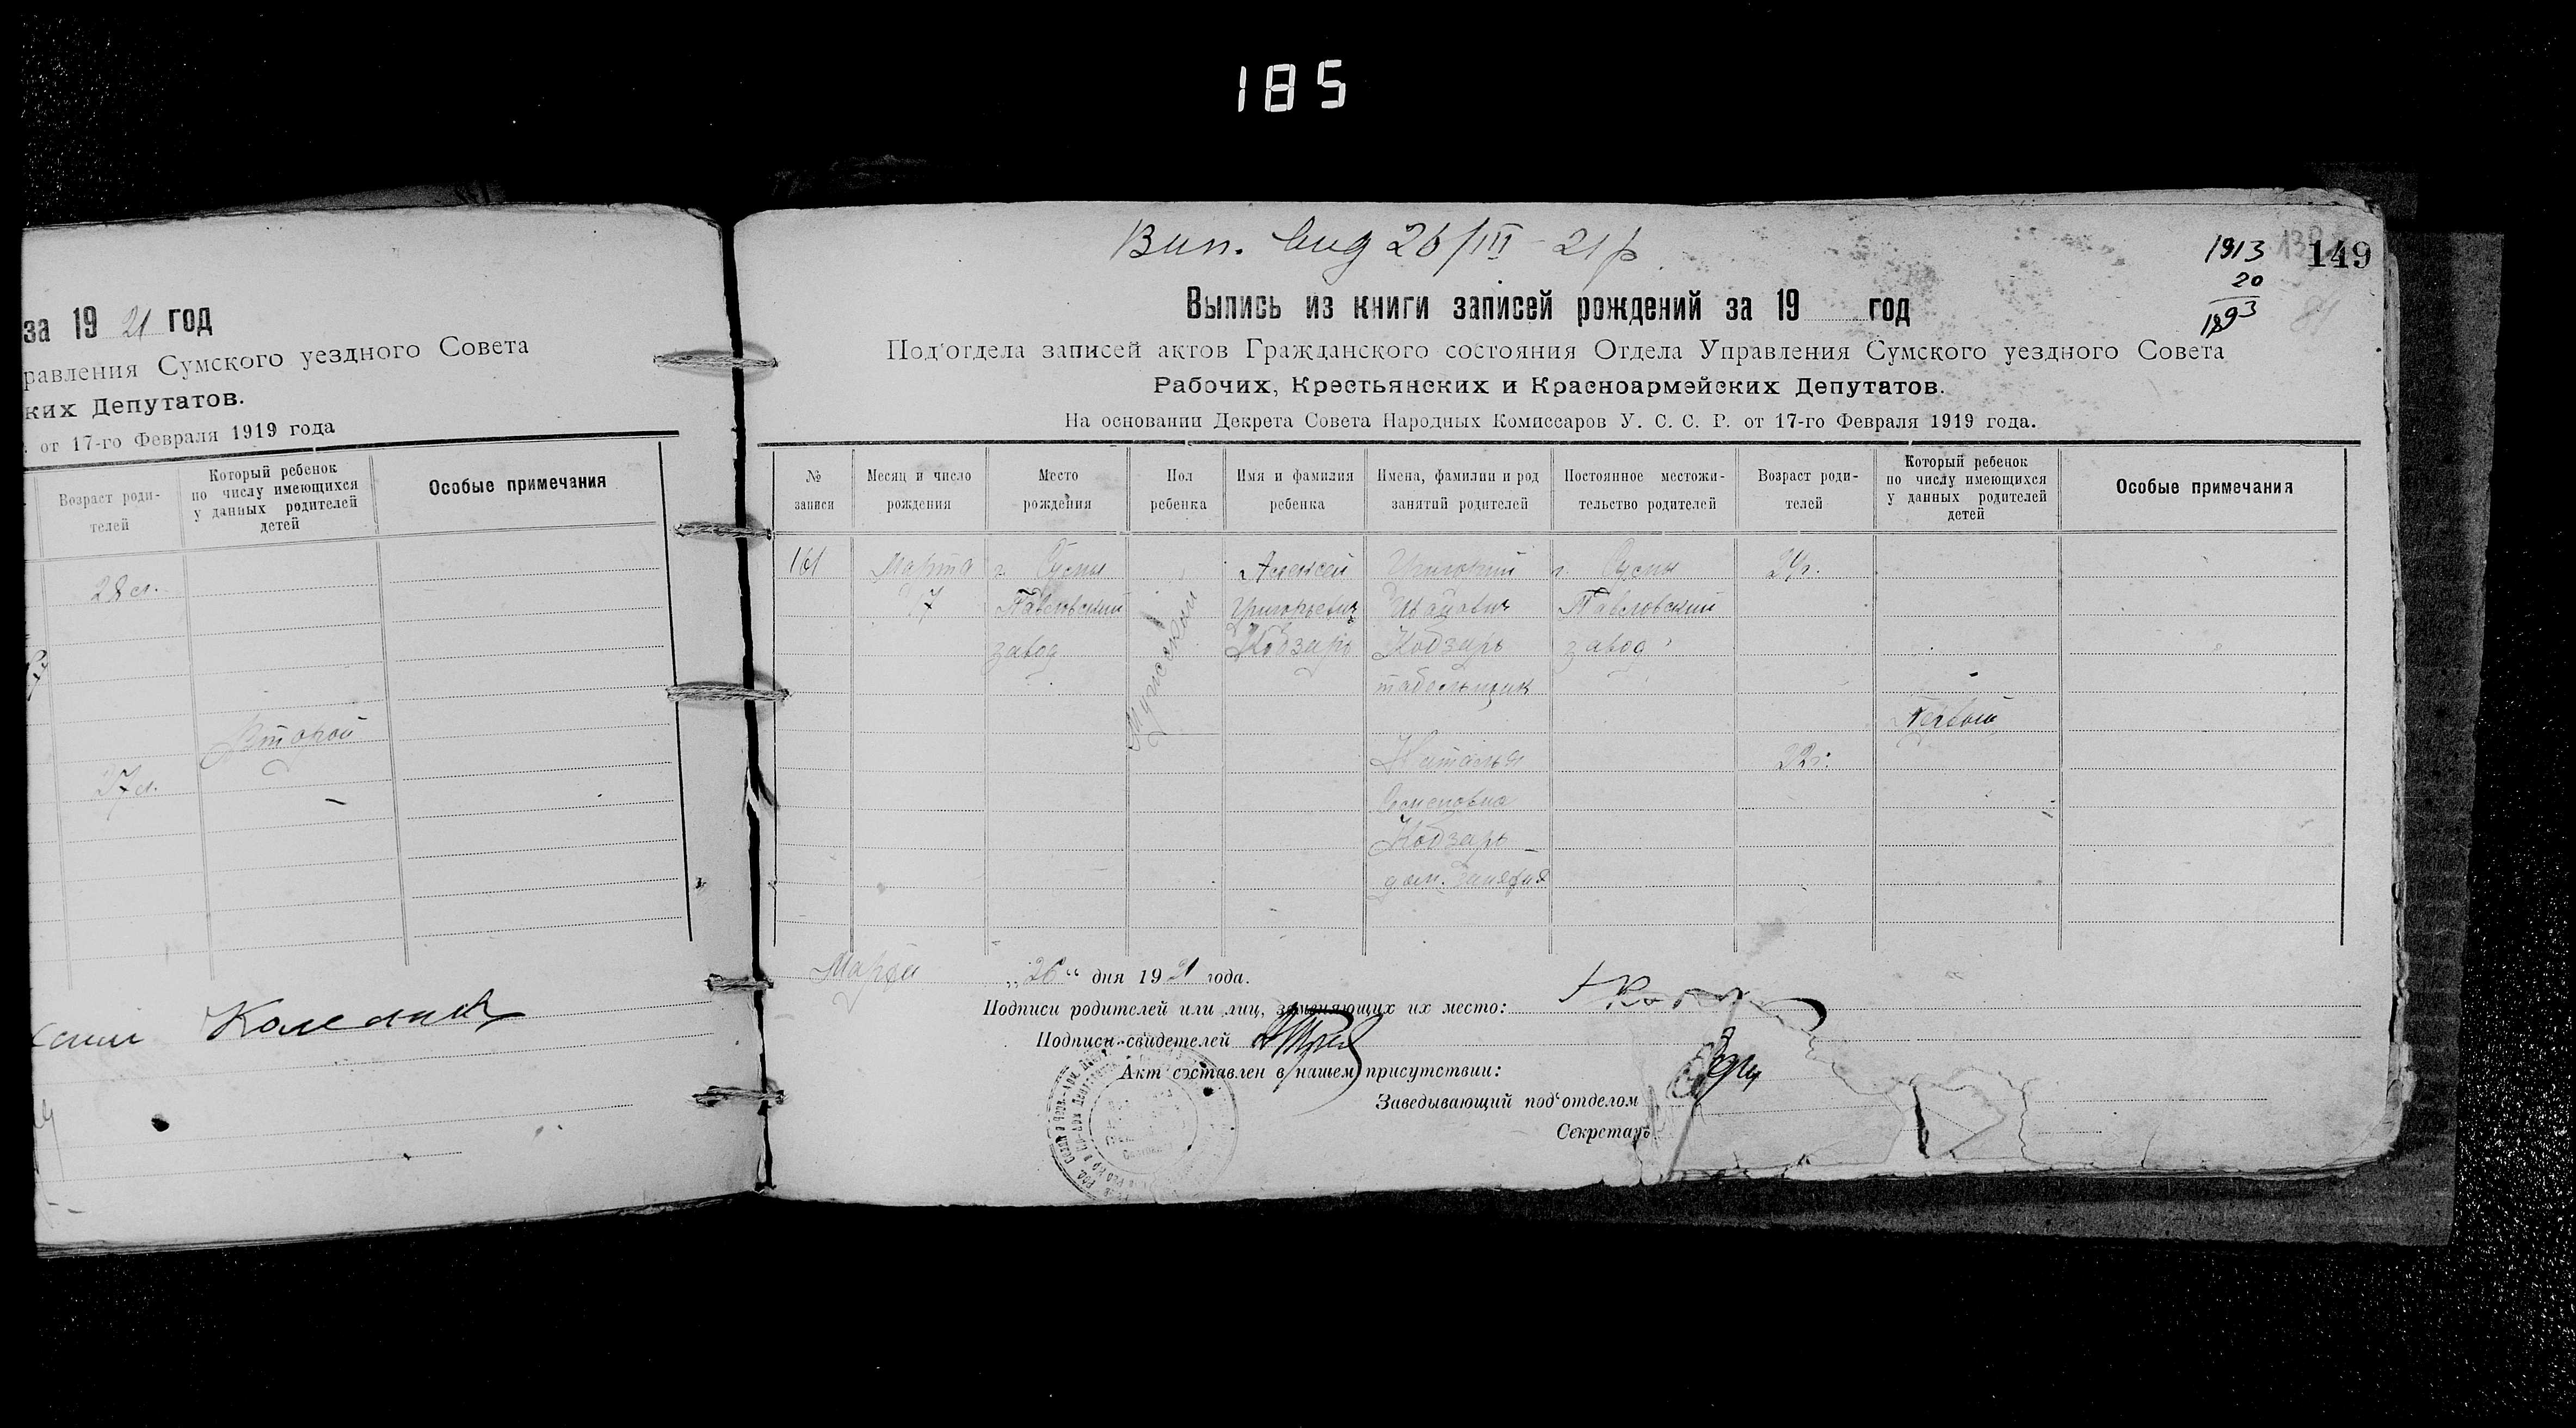 185
за 19 21 год
равления Сумского уездного Совета
ких Депутатов.
от 17-го Февраля 1919 года
Возраст роди-
телей
Который ребенок
по числу имеющихся
у данных родителей
детей
Особые примечания
28 л.
Второй
27 л.
Вип. вид 26/III - 21 р.
1913
20
1893
149
Выпись из книги записей рождений за 19 год
Под'отдела записей актов Гражданского состояния Отдела Управления Сумского уездного Совета
Рабочих, Крестьянских и Красноармейских Депутатов.
На основании Декрета Совета Народных Комиссаров У. С. С. Р. от 17-го Февраля 1919 года.
№
записи
Месяц и число
рождения
Место
рождения
Пол
ребенка
Имя и фамилия
ребенка
Имена, фамилии и род
занятий родителей
Постоянное местожи-
тельство родителей
Возраст роди-
телей
Который ребенок
по числу имеющихся
у данных родителей
детей
Особые примечания
161
Марта
17
г. Сумы
Павловский
завод
Мужской
Алексей
Григорьевич
Кобзарь
Григорий
Иванович
Кобзарь
табельщик
Наталья
Семеновна
Кобзарь
дом. занятия
г. Сумы
Павловский
завод
24 г.
22 г.
Первый
Марта „26“ дня 1921 года.
Подписи родителей или лиц, заменяющих их место:
Подписи свидетелей
Акт составлен в нашем присутствии:
Заведывающий под'отделом
Секретарь